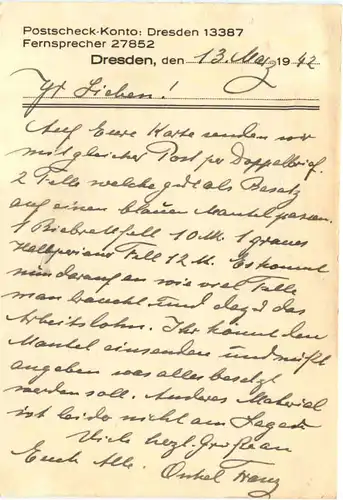 Postscheck-Konto: Dresden 13387
Fernsprecher 27852
Dresden, den 13. Mai 1942
Ihr Lieben!
Auf Eure Karte senden wir
mit gleicher Post per Doppelbrief
2 Felle welche gut als Besatz
auf einen blauen Mantel passen.
1 Fell 10 M. 1 graues
Fell 12 M. Es kommt
nun darauf an wie viel Felle
man braucht und dazu das
Arbeitslohn. Ihr könnt den
Mantel einsenden und müßt
angeben was alles besetzt
werden soll. Anderes Material
ist leider nicht am Lager
Viele herzl. Grüße an
Euch Alle. Onkel Franz